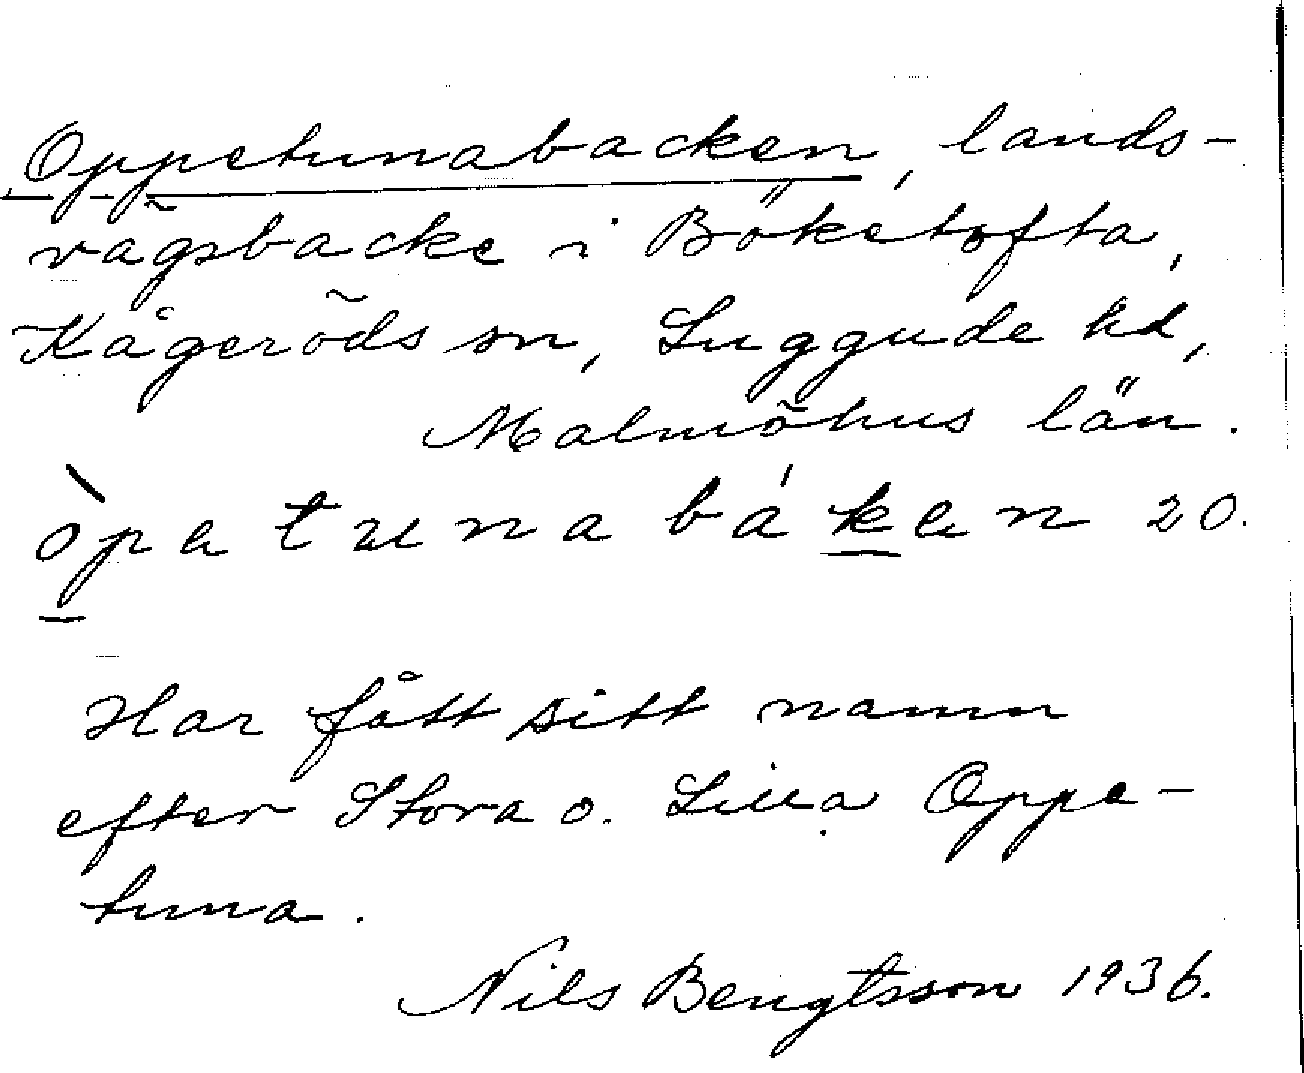 Oppetunabacken, lands-
vägsbacke i Böketofta,
Kågeröds sn, Luggude hd,
Malmöhus län.
òpetunabáken 20.
Har fått sitt namn
efter Stora o. Lilla Oppe-
tuna.
Nils Bengtsson 1936.